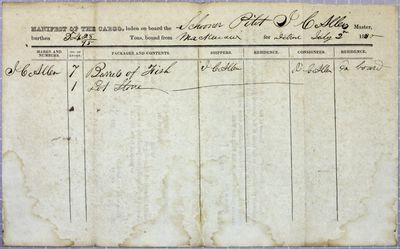 MANIFEST OF THE CARGO, laden on board the Schooner Pilot J C Allen Master,
burthen Tons, bound from Mackinaw for Detroit July 2 18
MARKS AND NUMBERS. NO. OF PACKAGES AND CONTENTS. SHIPPERS. RESIDENCE. CONSIGNEES. RESIDENCE.
J C Allen 7 Barrels of Fish J C Allen J C Allen on board
1 Lot Stone